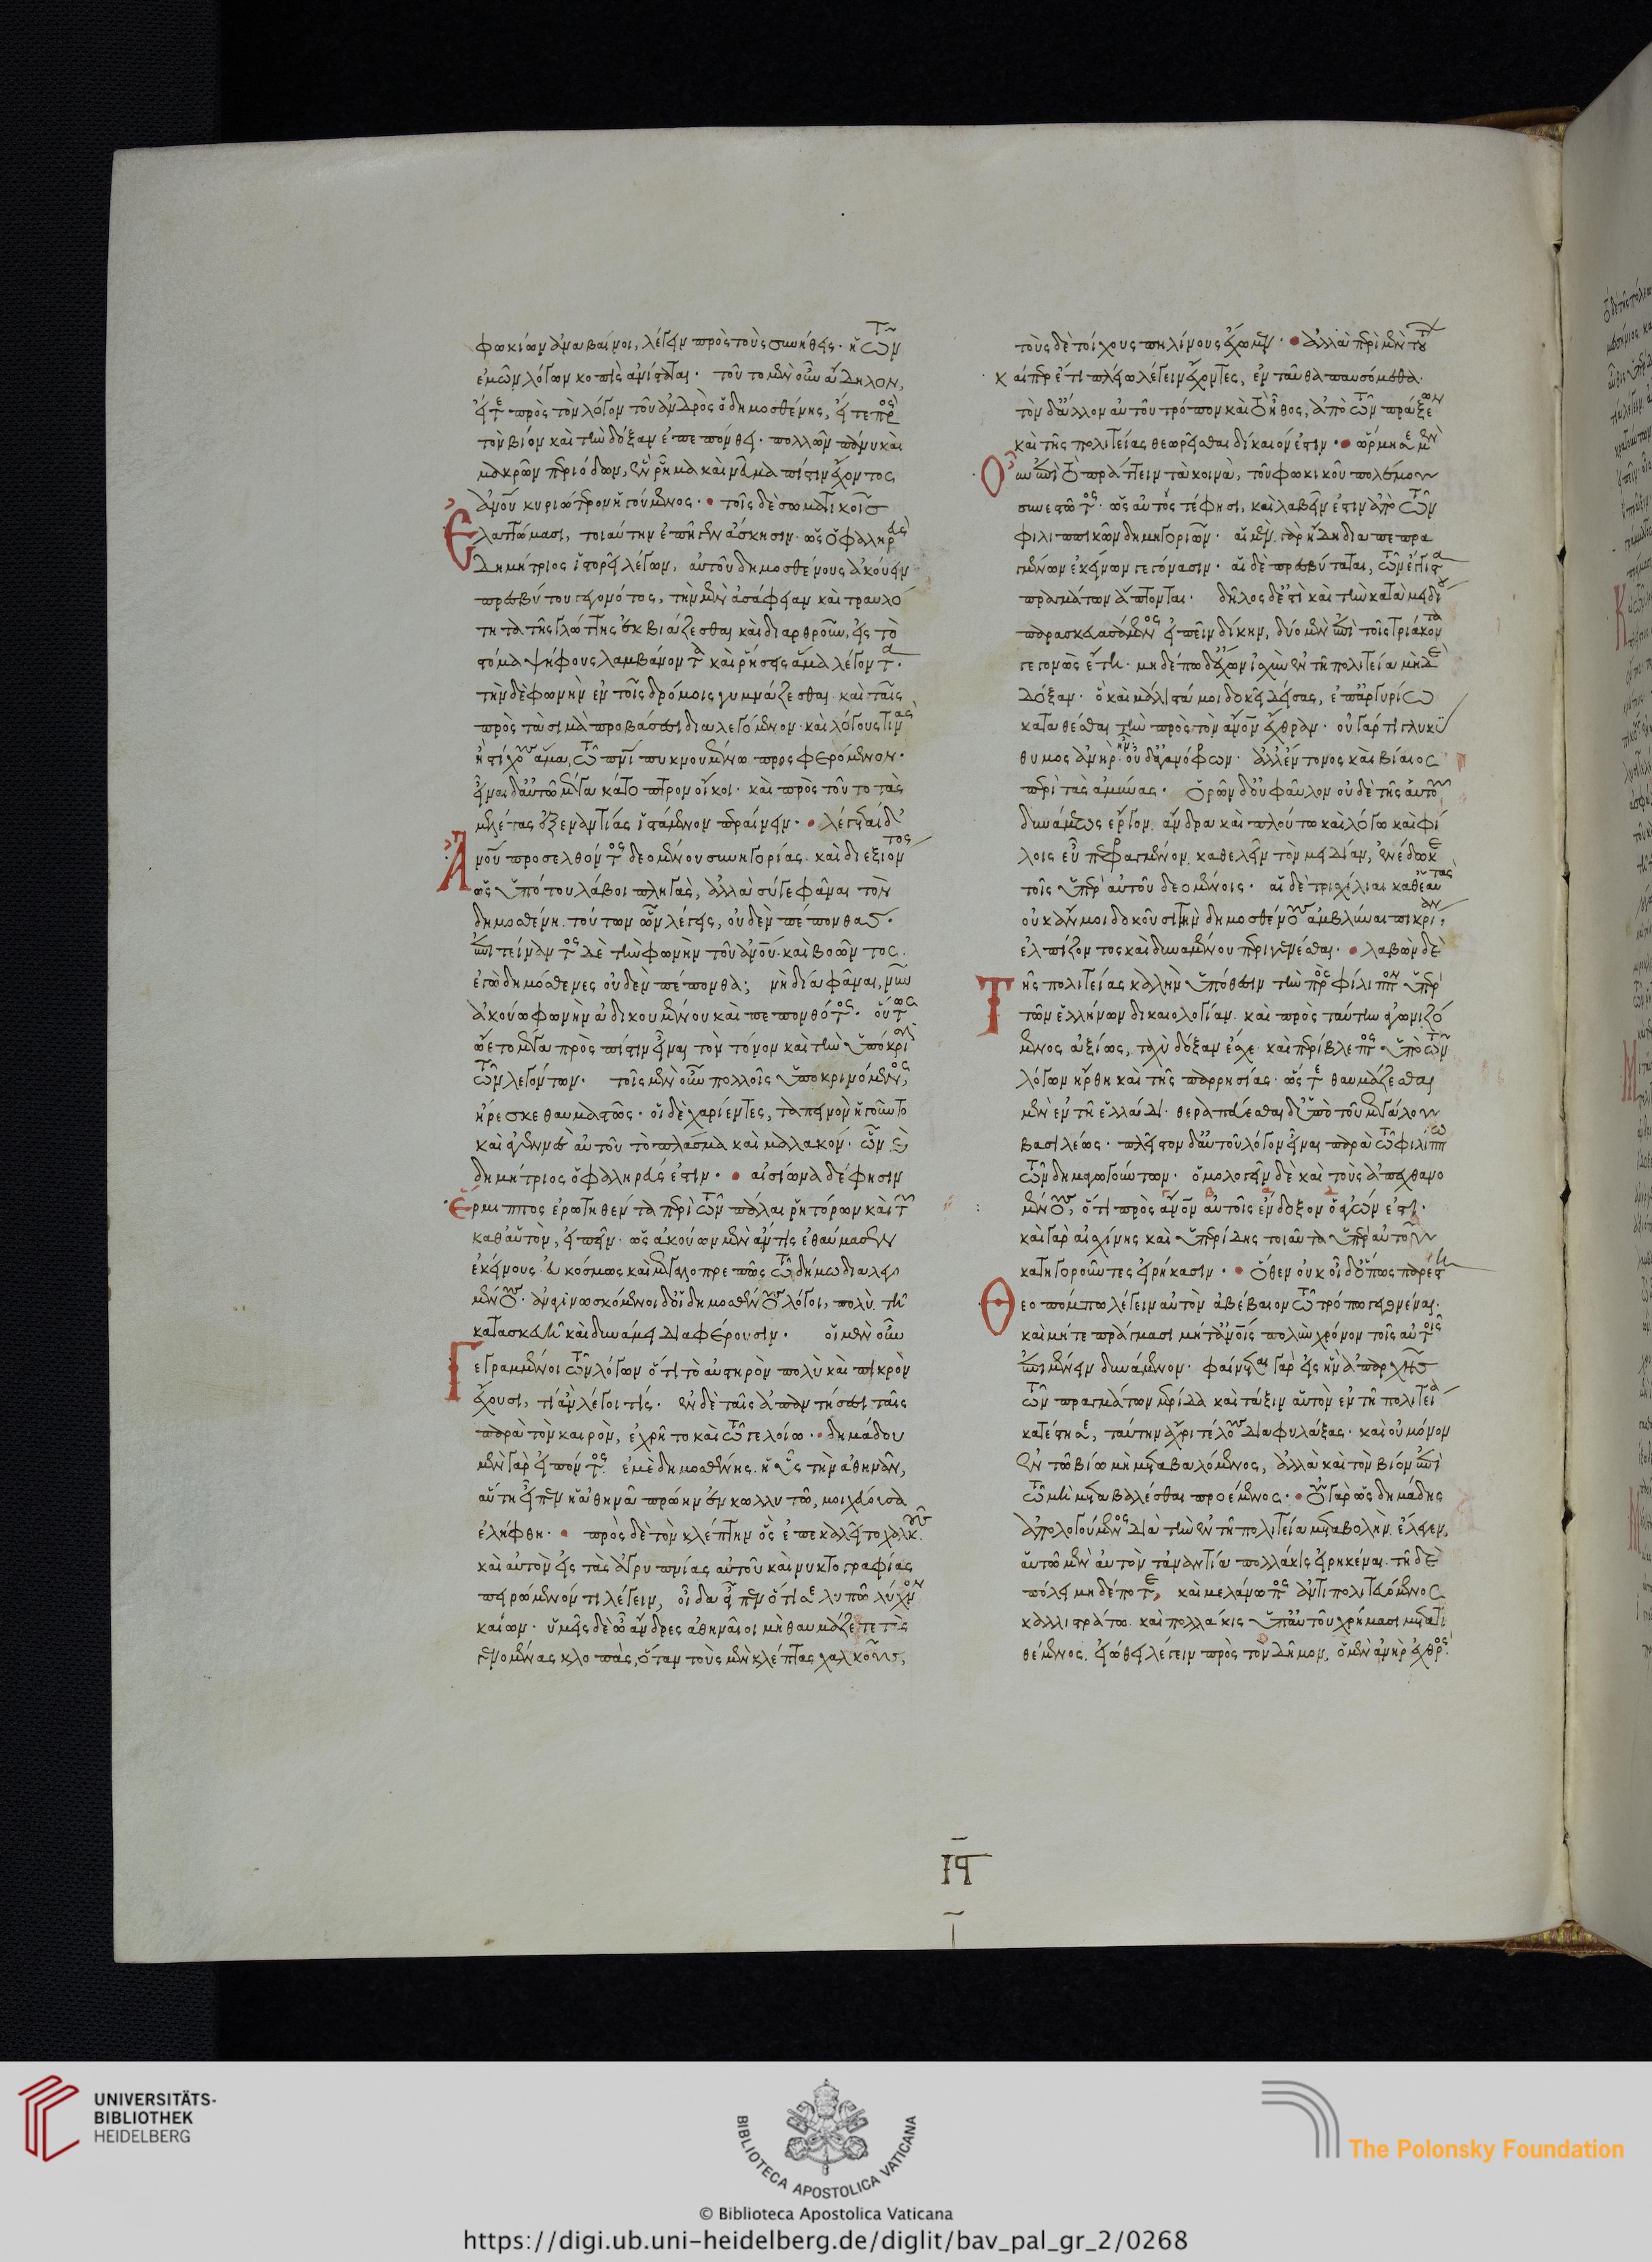 φωκίων ἀναβαίνοι, λέγειν πρὸς τοὺς συνήθεις· ἡ τῶν
ἐμῶν λόγων κοπὶς ἀνίσταται. τοῦτο μὲν οὖν ἄδηλον,
εἴτε πρὸς τὸν λόγον τοῦ ἀνδρὸς ὁ δημοσθένης, εἴτε πρὸς
τὸν βίον καὶ τὴν δόξαν ἐπεπόνθει. πολλῶν πάνυ καὶ
μακρῶν περιόδων, ἓν ῥῆμα καὶ νεῦμα πίστιν ἔχοντος
ἀνθρώπου κυριώτερον ἡγούμενος. τοῖς δὲ σωματικοῖς
ἐλαττώμασι, τοιαύτην ἐπῆγεν ἄσκησιν· ὡς ὁ φαληρεὺς
Δημήτριος ἱστορεῖ λέγων, αὐτοῦ δημοσθένους ἀκούειν
πρεσβύτου γεγονότος, τὴν μὲν ἀσάφειαν καὶ τραυλό
τητα τῆς γλώττης ἐκβιάζεσθαι καὶ διαρθροῦν, εἰς τὸ
στόμα ψήφους λαμβάνοντα καὶ ῥήσεις ἅμα λέγοντα.
τὴν δὲ φωνὴν ἐν τοῖς δρόμοις γυμνάζεσθαι καὶ ταῖς
πρὸς τὰ σιμὰ προβάσεσι διαλεγόμενον· καὶ λόγους τινὰς
ἢ στίχους ἅμα, τῷ πνεύματι πυκνουμένῳ προσφερόμενον·
εἶναι δ' αὐτῷ μέγα κάτοπτρον οἴκοι· καὶ πρὸς τοῦτο τὰς
μελέτας ἐξεναντίας ἱστάμενον περαίνειν. λέγεται δ'
Ἀνθρώπου προσελθόντος δεομένου συνηγορίας καὶ διεξιόντος
ὡς ὑπό του λάβοι πληγάς, ἀλλὰ σύ γε φάναι τὸν
δημοσθένη τούτων ὧν λέγεις, οὐδὲν πέπονθας.
ἐπιτείναντος δὲ τὴν φωνὴν τοῦ ἀνθρώπου καὶ βοῶντος.
ἐγὼ δημόσθενες οὐδὲν πέπονθα; νὴ δία φάναι, νῦν
ἀκούω φωνὴν ἀδικουμένου καὶ πεπονθότος. οὕτως
ᾤετο μέγα πρὸς πίστιν εἶναι τὸν τόνον καὶ τὴν ὑπόκρισιν
τῶν λεγόντων. τοῖς μὲν οὖν πολλοῖς ὑποκρινόμενος,
ἤρεσκε θαυμαστῶς· οἱ δὲ χαρίεντες, ταπεινὸν ἡγοῦντο
καὶ ἀγεννὲς αὐτοῦ τὸ πλάσμα καὶ μαλακόν. ὧν καὶ
δημήτριος ὁ φαληρεύς ἐστιν. αἰσίωνα δέ φησιν
Ἕρμιππος ἐρωτηθέντα περὶ τῶν πάλαι ῥητόρων καὶ τῶν
καθ' αὑτὸν, εἰπεῖν· ὡς ἀκούων μὲν ἄν τις ἐθαύμασεν
ἐκείνους εὐκόσμως καὶ μεγαλοπρεπῶς τῷ δήμῳ διαλεγο
μένους. ἀναγινωσκόμενοι δ' οἱ δημοσθένους λόγοι, πολὺ τῇ
κατασκευῇ καὶ δυνάμει διαφέρουσιν. οἱ μὲν οὖν
Γεγραμμένοι τῶν λόγων ὅτι τὸ αὐστηρὸν πολὺ καὶ πικρὸν
ἔχουσι, τί ἂν λέγοι τίς. ἐν δὲ ταῖς ἀπαντήσεσι ταῖς
παρὰ τὸν καιρὸν, ἐχρῆτο καὶ τῷ γελοίῳ. δημάδου
μὲν γὰρ εἰπόντος. ἐμὲ δημοσθένης. ἡ ὗς τὴν ἀθηνᾶν,
αὕτη εἶπεν ἡ ἀθηνᾶ πρώην ἐν κολλυτῷ, μοιχεύουσα
ἐλήφθη. πρὸς δὲ τὸν κλέπτην ὃς ἐπεκαλεῖτο χαλκοῦς
καὶ αὐτὸν εἰς τὰς ἀγρυπνίας αὐτοῦ καὶ νυκτογραφίας
πειρώμενόν τι λέγειν, οἶδα εἶπεν ὅτι σε λυπῶ λύχνον
καίων. ὑμεῖς δὲ ὦ ἄνδρες ἀθηναῖοι μὴ θαυμάζετε τὰς
γενομένας κλοπάς, ὅταν τοὺς μὲν κλέπτας χαλκοῦς,
τοὺς δὲ τοίχους πηλίνους ἔχωμεν. ἀλλὰ περὶ μὲν τούτων
καίπερ ἔτι πλείω λέγειν ἔχοντες, ἐνταῦθα παυσόμεθα.
τὸν δ' ἄλλον αὐτοῦ τρόπον καὶ τὸ ἦθος, ἀπὸ τῶν πράξεων
καὶ τῆς πολιτείας θεωρεῖσθαι δίκαιόν ἐστιν. ὥρμησε μὲν
Οὖν ἐπὶ τὸ πράττειν τὰ κοινὰ, τοῦ φωκικοῦ πολέμου
συνεστῶτος. ὡς αὐτός τέ φησι, καὶ λαβεῖν ἐστιν ἀπὸ τῶν
φιλιππικῶν δημηγοριῶν. αἱ μὲν γὰρ ἤδη διαπεπρα
γμένων ἐκείνων γεγόνασιν. αἱ δὲ πρεσβύταται, τῶν ἔγγιστα
πραγμάτων ἅπτονται. δῆλος δ' ἐστὶ καὶ τὴν κατὰ μειδίου
παρασκευασάμενος εἰπεῖν δίκην, δύο μὲν ἐπὶ τοῖς τριάκοντα
γεγονὼς ἔτη. μηδέπω δ' ἔχων ἰσχὺν ἐν τῇ πολιτείᾳ μηδὲ
δόξαν. ὃ καὶ μάλιστά μοι δοκεῖ δείσας, ἐπ' ἀργυρίῳ
καταθέσθαι τὴν πρὸς τὸν ἄνθρωπον ἔχθραν. οὐ γάρ τι γλυκύ
θυμος ἀνὴρ ἦν οὐδ' ἀγανόφρων. ἀλλ' ἔντονος καὶ βίαιος
περὶ τὰς ἀμύνας. ὁρῶν δ' οὐ φαῦλον οὐδὲ τῆς αὑτοῦ
δυνάμεως ἔργον ἄνδρα καὶ πλούτῳ καὶ λόγῳ καὶ φί
λοις εὖ πεφραγμένον, καθελεῖν τὸν μειδίαν, ἐνέδωκε
τοῖς ὑπὲρ αὐτοῦ δεομένοις. αἱ δὲ τρισχίλιαι καθ' ἑαυτὰς
οὐκ ἄν μοι δοκοῦσι τὴν δημοσθένους ἀμβλῦναι πικρίαν,
ἐλπίζοντος καὶ δυναμένου περιγενέσθαι. λαβὼν δὲ
Τῆς πολιτείας καλὴν ὑπόθεσιν τὴν πρὸς φίλιππον ὑπὲρ
τῶν ἑλλήνων δικαιολογίαν. καὶ πρὸς ταύτην ἀγωνιζό
μενος ἀξίως, ταχὺ δόξαν ἔσχε καὶ περίβλεπτος ὑπὸ τῶν
λόγων ἤρθη καὶ τῆς παρρησίας. ὥστε θαυμάζεσθαι
μὲν ἐν τῇ ἑλλάδι, θεραπεύεσθαι δ' ὑπὸ τοῦ μεγάλου
βασιλέως. πλεῖστον δ' αὐτοῦ λόγον εἶναι παρὰ τῷ φιλίππῳ
τῶν δημαγωγούντων. ὁμολογεῖν δὲ καὶ τοὺς ἀπεχθανο
μένους, ὅτι πρὸς ἄνθρωπον αὐτοῖς ἔνδοξον ὁ ἀγών ἐστι.
καὶ γὰρ αἰσχίνης καὶ ὑπερίδης τοιαῦτα ὑπὲρ αὐτοῦ
κατηγοροῦντες εἰρήκασιν. ὅθεν οὐκ οἶδ' ὅπως παρέστη
Θεοπόμπῳ λέγειν αὐτὸν ἀβέβαιον τῷ τρόπῳ γεγονέναι.
καὶ μήτε πράγμασι μήτ' ἀνθρώποις πολὺν χρόνον τοῖς αὐτοῖς
ἐπιμένειν δυνάμενον. φαίνεται γὰρ εἰς ἣν ἀπ' ἀρχῆς
τῶν πραγμάτων μερίδα καὶ τάξιν αὑτὸν ἐν τῇ πολιτείᾳ
κατέστησε, ταύτην ἄχρι τέλους διαφυλάξας. καὶ οὐ μόνον
ἐν τῷ βίῳ μὴ μεταβαλόμενος, ἀλλὰ καὶ τὸν βίον ἐπὶ
τῷ μὴ μεταβαλέσθαι προέμενος. οὐ γὰρ ὡς δημάδης
ἀπολογούμενος διὰ τὴν ἐν τῇ πολιτείᾳ μεταβολὴν, ἔλεγεν,
αὑτῷ μὲν αὐτὸν τἀναντία πολλάκις εἰρηκέναι, τῇ δὲ
πόλει μηδέποτε, καὶ μελάνωπος ἀντιπολιτευόμενος
καλλιστράτῳ. καὶ πολλάκις ὑπ' αὐτοῦ χρήμασι μετατι
θέμενος, εἰώθει λέγειν πρὸς τὸν δῆμον, ὁ μὲν ἀνὴρ ἐχθρός.
UNIVERSITÄTS-
BIBLIOTHEK
HEIDELBERG
BIBLIOTECA APOSTOLICA VATICANA
The Polonsky Foundation
© Biblioteca Apostolica Vaticana
https://digi.ub.uni-heidelberg.de/diglit/bav_pal_gr_2/0268